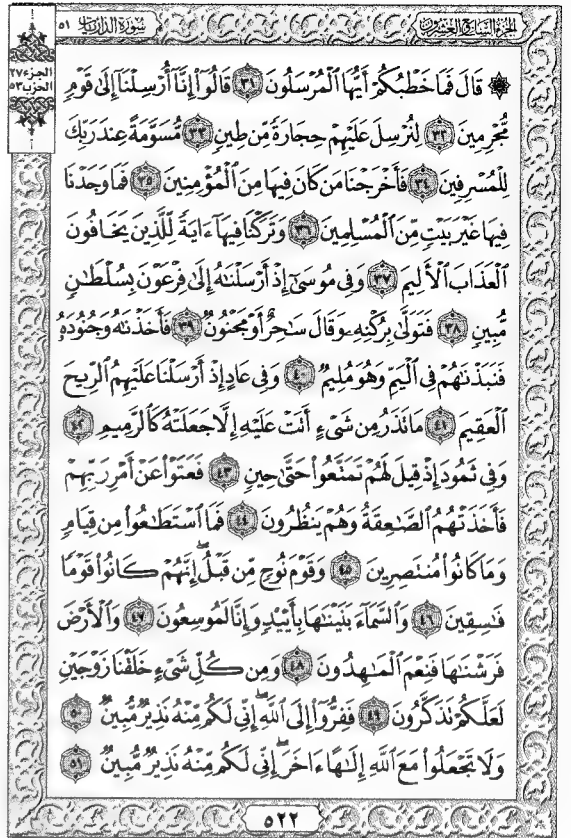 الجزء السابع والعشرون
سورة الذاريات ٥١
الجزء ٢٧
الحزب ٥٣
۞ قَالَ فَمَا خَطْبُكُمْ أَيُّهَا ٱلْمُرْسَلُونَ ٣١ قَالُوٓا۟ إِنَّآ أُرْسِلْنَآ إِلَىٰ قَوْمٍ
مُّجْرِمِينَ ٣٢ لِنُرْسِلَ عَلَيْهِمْ حِجَارَةً مِّن طِينٍ ٣٣ مُّسَوَّمَةً عِندَ رَبِّكَ
لِلْمُسْرِفِينَ ٣٤ فَأَخْرَجْنَا مَن كَانَ فِيهَا مِنَ ٱلْمُؤْمِنِينَ ٣٥ فَمَا وَجَدْنَا
فِيهَا غَيْرَ بَيْتٍ مِّنَ ٱلْمُسْلِمِينَ ٣٦ وَتَرَكْنَا فِيهَآ ءَايَةً لِّلَّذِينَ يَخَافُونَ
ٱلْعَذَابَ ٱلْأَلِيمَ ٣٧ وَفِى مُوسَىٰٓ إِذْ أَرْسَلْنَٰهُ إِلَىٰ فِرْعَوْنَ بِسُلْطَٰنٍ
مُّبِينٍ ٣٨ فَتَوَلَّىٰ بِرُكْنِهِۦ وَقَالَ سَٰحِرٌ أَوْ مَجْنُونٌ ٣٩ فَأَخَذْنَٰهُ وَجُنُودَهُۥ
فَنَبَذْنَٰهُمْ فِى ٱلْيَمِّ وَهُوَ مُلِيمٌ ٤٠ وَفِى عَادٍ إِذْ أَرْسَلْنَا عَلَيْهِمُ ٱلرِّيحَ
ٱلْعَقِيمَ ٤١ مَا تَذَرُ مِن شَىْءٍ أَتَتْ عَلَيْهِ إِلَّا جَعَلَتْهُ كَٱلرَّمِيمِ ٤٢
وَفِى ثَمُودَ إِذْ قِيلَ لَهُمْ تَمَتَّعُوا۟ حَتَّىٰ حِينٍ ٤٣ فَعَتَوْا۟ عَنْ أَمْرِ رَبِّهِمْ
فَأَخَذَتْهُمُ ٱلصَّٰعِقَةُ وَهُمْ يَنظُرُونَ ٤٤ فَمَا ٱسْتَطَٰعُوا۟ مِن قِيَامٍ
وَمَا كَانُوا۟ مُنتَصِرِينَ ٤٥ وَقَوْمَ نُوحٍ مِّن قَبْلُ ۖ إِنَّهُمْ كَانُوا۟ قَوْمًا
فَٰسِقِينَ ٤٦ وَٱلسَّمَآءَ بَنَيْنَٰهَا بِأَيْي۟دٍ وَإِنَّا لَمُوسِعُونَ ٤٧ وَٱلْأَرْضَ
فَرَشْنَٰهَا فَنِعْمَ ٱلْمَٰهِدُونَ ٤٨ وَمِن كُلِّ شَىْءٍ خَلَقْنَا زَوْجَيْنِ
لَعَلَّكُمْ تَذَكَّرُونَ ٤٩ فَفِرُّوٓا۟ إِلَى ٱللَّهِ ۖ إِنِّى لَكُم مِّنْهُ نَذِيرٌ مُّبِينٌ ٥٠
وَلَا تَجْعَلُوا۟ مَعَ ٱللَّهِ إِلَٰهًا ءَاخَرَ ۖ إِنِّى لَكُم مِّنْهُ نَذِيرٌ مُّبِينٌ ٥١
٥٢٢